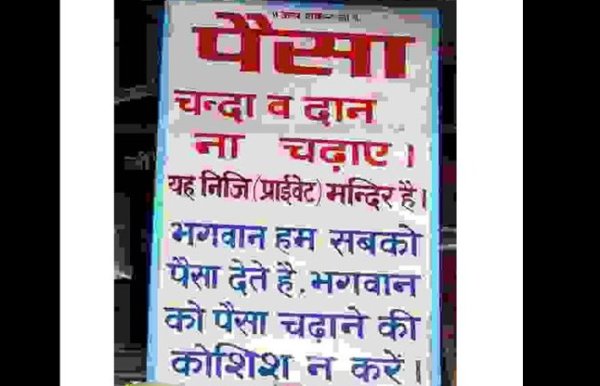 पैसा
चन्दा व दान
ना चढ़ाए।
यह निजि (प्राईवेट) मन्दिर है।
भगवान हम सबको
पैसा देते है. भगवान
को पैसा चढ़ाने की
कोशिश न करें।